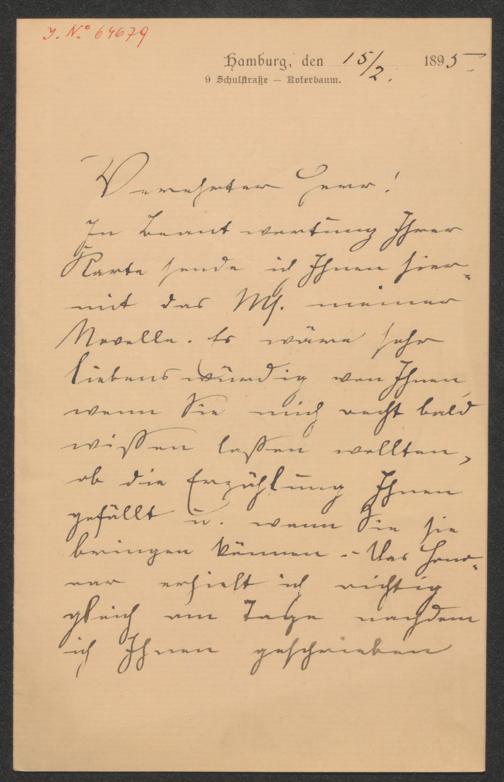 J. N.º 64679
Hamburg, den 15/2. 1895
9 Schulstraße — Roterbaum.
Verehrter Herr!
In Beantwortung Ihrer
Karte sende ich Ihnen hier-
mit das Ms. meiner
Novelle. Es wäre sehr
liebenswürdig von Ihnen,
wenn Sie mich recht bald
wissen lassen wollten,
ob die Erzählung Ihnen
gefällt u. wann Sie sie
bringen können. - Das Hono-
rar erhielt ich richtig
gleich am Tage nachdem
ich Ihnen geschrieben